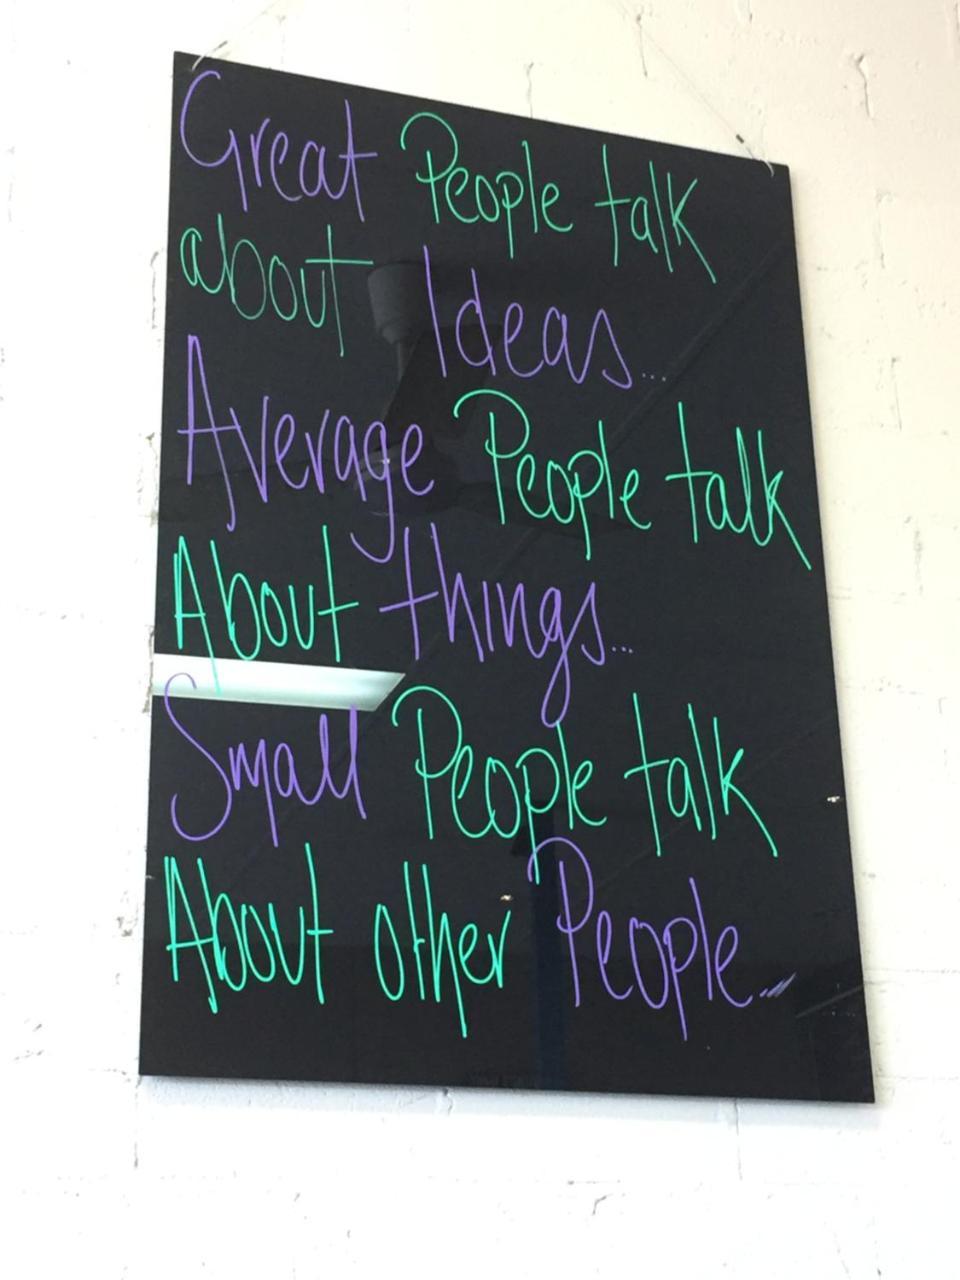 Great People talk
about Ideas...
Average People talk
About things...
Small People talk
About other People...